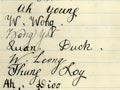 Ah Young
W. Wong
Wong Yet
Quan Duck.
W. Leong
Thung Loy
Ah, Sioo